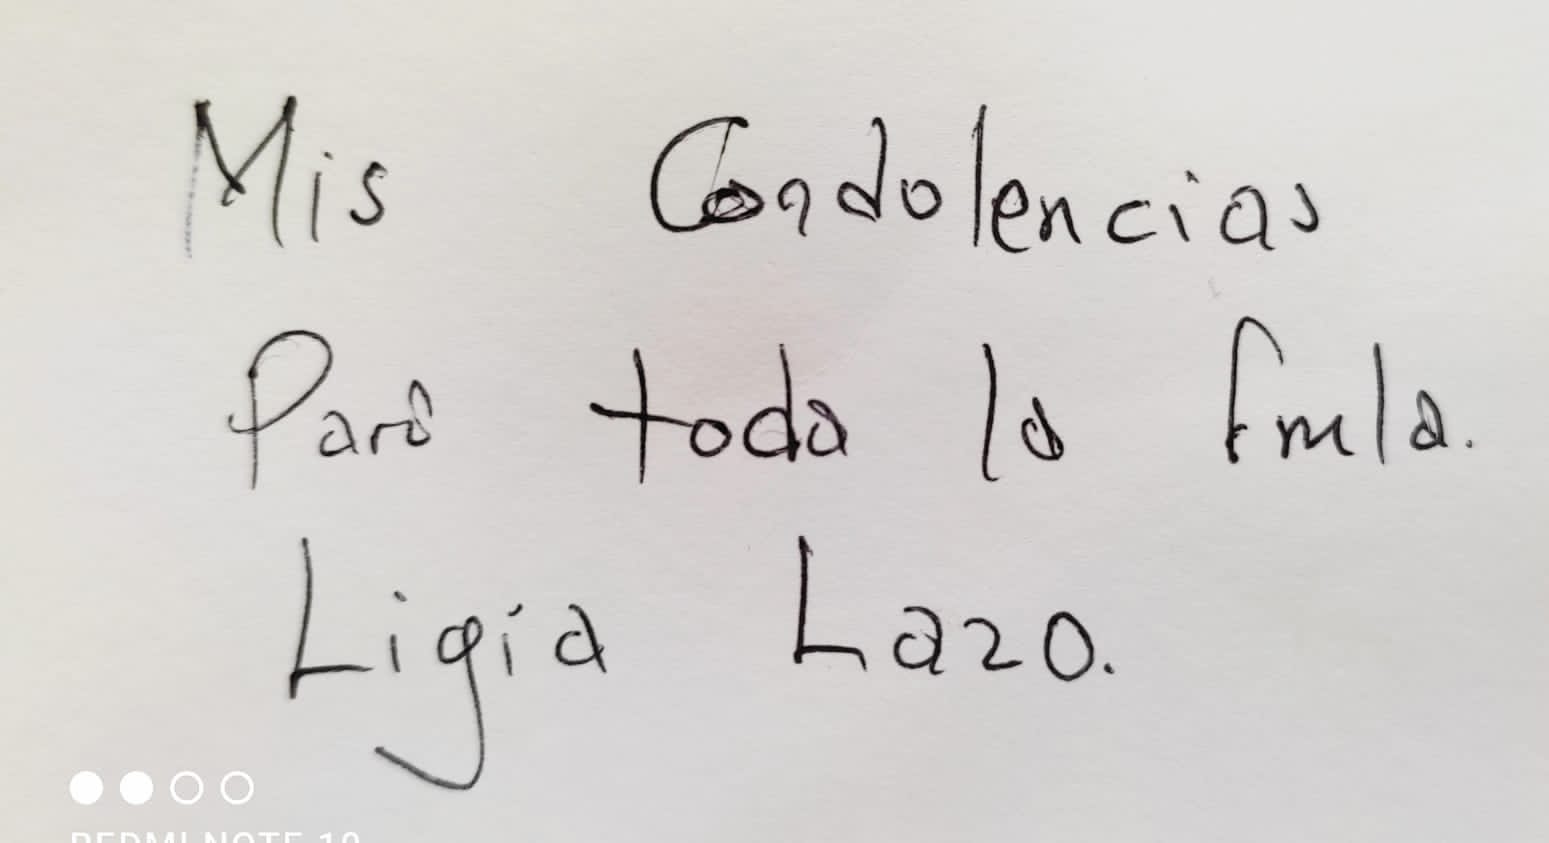 Mis Condolencias
Para toda la fmla.
Ligia Lazo.
REDMI NOTE 10